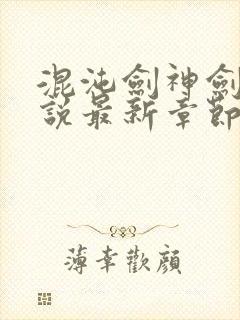 混沌劍神劍
說最新章節
薄幸歡顏